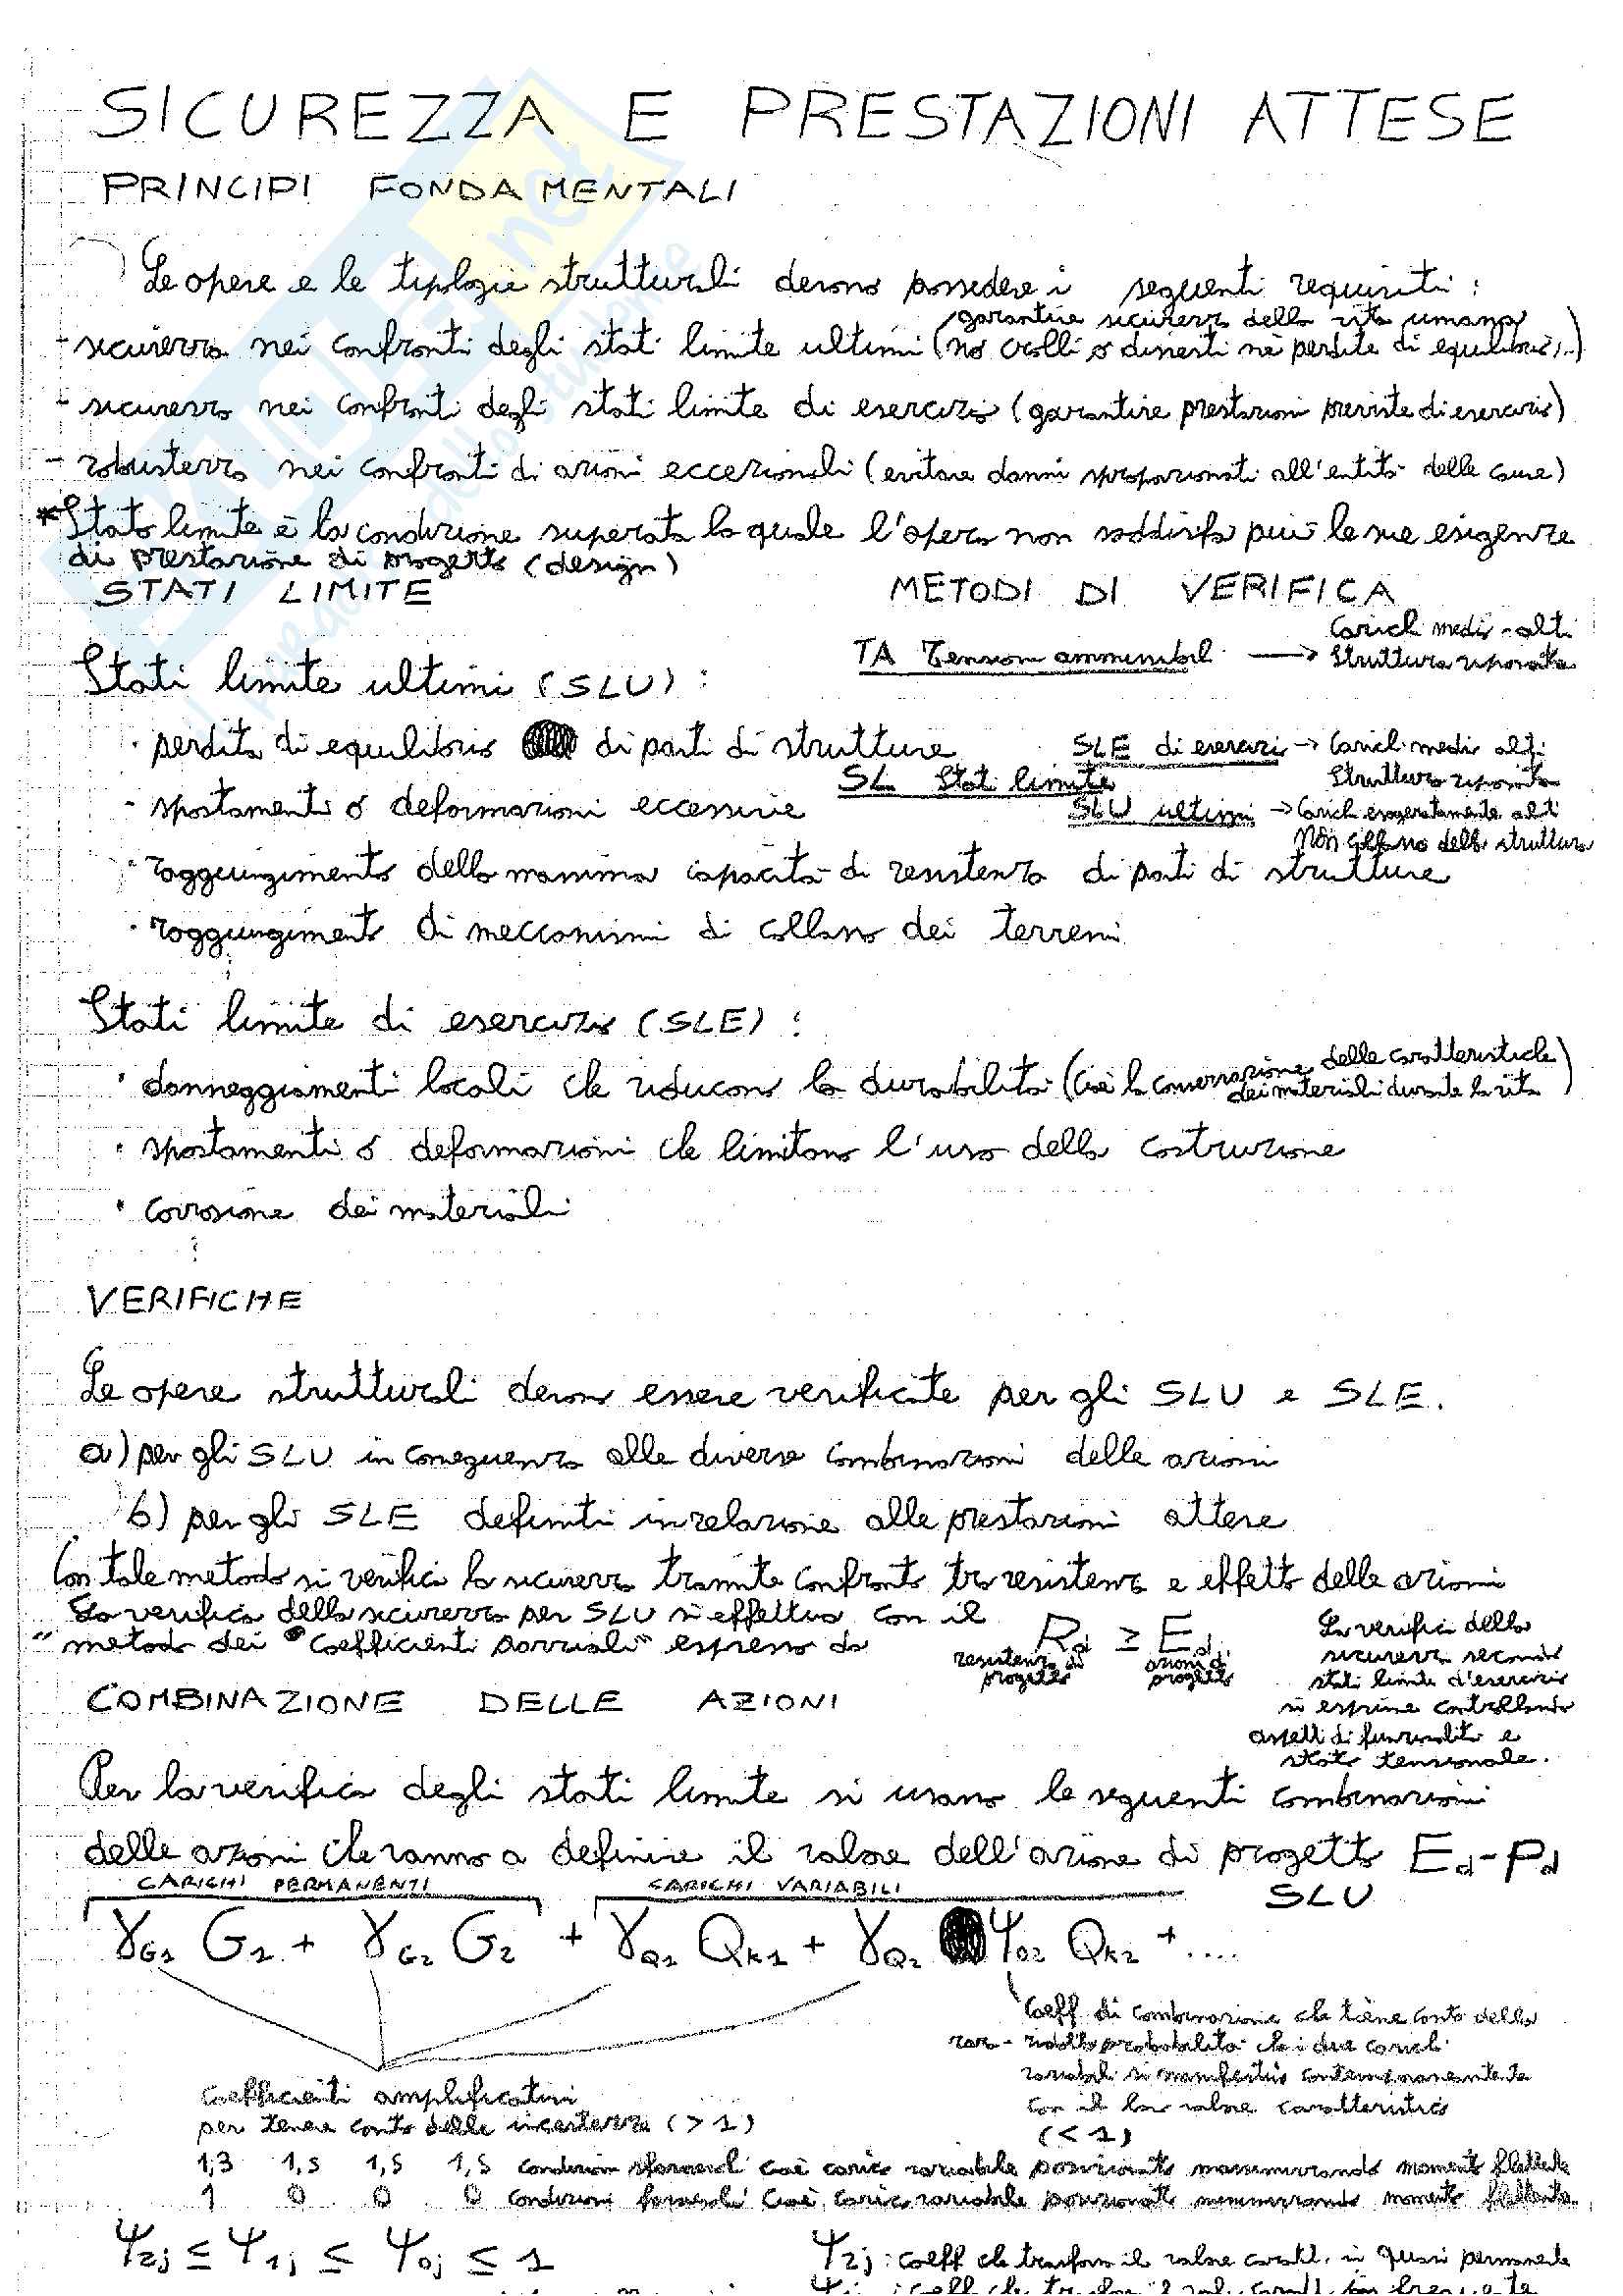 SICUREZZA E PRESTAZIONI ATTESE
PRINCIPI FONDAMENTALI
Le opere e le tipologie strutturali devono possedere i seguenti requisiti:
garantire sicurezza della vita umana
- sicurezza nei confronti degli stati limite ultimi (no crolli o dissesti nè perdite di equilibrio,..)
- sicurezza nei confronti degli stati limite di esercizio (garantire prestazioni previste di esercizio)
- robustezza nei confronti di azioni eccezionali (evitare danni sproporzionati all'entità delle cause)
*Stato limite è la condizione superata la quale l'opera non soddisfa più le sue esigenze
di prestazione di progetto (design)
STATI LIMITE
METODI DI VERIFICA
TA Tensioni ammissibili → Carichi medio-alti
Struttura riposata
Stati limite ultimi (SLU):
· perdita di equilibrio di parti di strutture
SLE di esercizi → Carichi medio alti
Struttura riposata
SL Stati limite
· spostamenti o deformazioni eccessive
SLU ultimi → Carichi esageratamente alti
Non collasso della struttura
· raggiungimento della massima capacità di resistenza di parti di strutture
· raggiungimento di meccanismi di collasso dei terreni
Stati limite di esercizio (SLE):
· danneggiamenti locali che riducono la durabilità (cioè la conservazione delle caratteristiche
dei materiali durante la vita)
· spostamenti o deformazioni che limitano l'uso della costruzione
· corrosione dei materiali
VERIFICHE
Le opere strutturali devono essere verificate per gli SLU e SLE.
a) per gli SLU in conseguenza alle diverse combinazioni delle azioni
b) per gli SLE definiti in relazione alle prestazioni attese
Con tale metodo si verifica la sicurezza tramite confronto tra resistenza e effetto delle azioni
La verifica della sicurezza per SLU si effettua con il
"metodo dei coefficienti parziali" espresso da
Rd ≥ Ed
resistenza di progetto
azioni di progetto
La verifica della
sicurezza secondo
stati limite d'esercizio
si esprime controllando
aspetti di funzionalità e
stato tensionale.
COMBINAZIONE DELLE AZIONI
Per la verifica degli stati limite si usano le seguenti combinazioni
delle azioni che vanno a definire il valore dell'azione di progetto Ed-Pd
CARICHI PERMANENTI
CARICHI VARIABILI
SLU
γG1 G1 + γG2 G2 + γQ1 Qk1 + γQ2 ψ02 Qk2 + ....
Coeff di combinazione che tiene conto della
ridotta probabilità che i due carichi
variabili si manifestino contemporaneamente
con il loro valore caratteristico
(<1)
coefficienti amplificativi
per tenere conto delle incertezze (>1)
1,3 1,5 1,5 1,5 condizioni sfavorevoli cioè carico variabile posizionato massimizzando momento flettente
1 0 0 0 condizioni favorevoli cioè carico variabile posizionato minimizzando momento flettente
ψ2j ≤ ψ1j ≤ ψ0j ≤ 1
ψ2j: coeff che trasforma il valore caratt. in quasi permanente